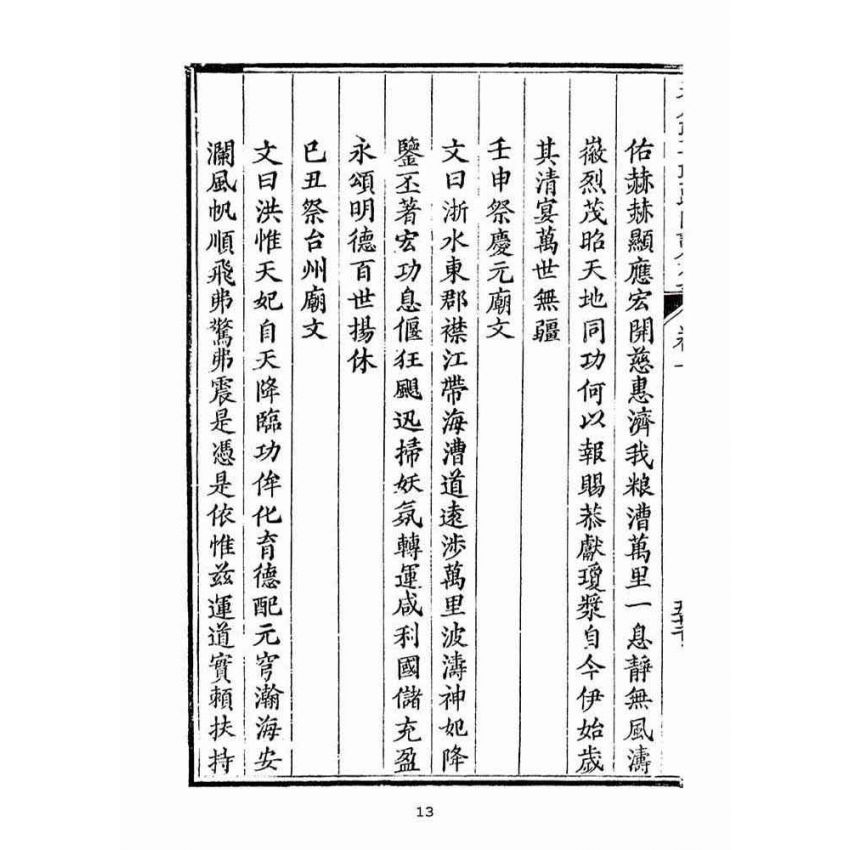 佑赫赫顯應宏開慈惠濟我粮漕萬里一息靜無風濤
嶶烈茂昭天地同功何以報賜恭獻瓊漿自今伊始歲
其清宴萬世無疆
壬申祭慶元廟文
文曰浙水東郡襟江帶海漕道遠涉萬里波濤神妃降
鑒丕著宏功息偃狂飓迅掃妖氛轉運咸利國儲充盈
永頌明德百世揚休
已丑祭台州廟文
文曰洪惟天妃自天降臨功侔化育德配元穹瀚海安
瀾風帆順飛弗驚弗震是憑是依惟兹運道實賴扶持
13